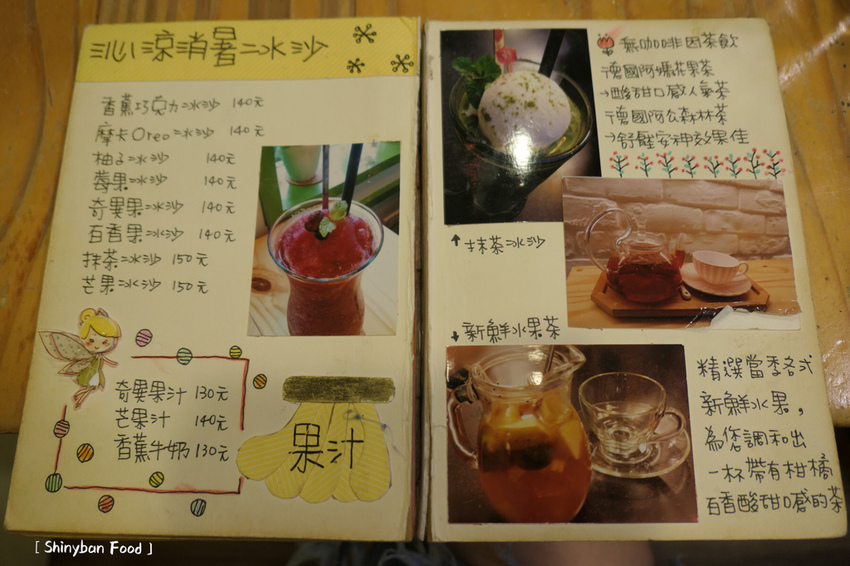 沁涼消暑冰沙
香蕉巧克力冰沙 140元
摩卡Oreo冰沙 140元
柚子冰沙 140元
莓果冰沙 140元
奇異果冰沙 140元
百香果冰沙 140元
抹茶冰沙 150元
芒果冰沙 150元
奇異果汁 130元
芒果汁 140元
香蕉牛奶 130元
果汁
無咖啡因茶飲
德國阿嬤花果茶
→酸甜口感人氣茶
德國阿公森林茶
→舒壓安神效果佳
↑抹茶冰沙
↓新鮮水果茶
精選當季各式
新鮮水果，
為您調和出
一杯帶有柑橘
百香酸甜口感的茶
[ Shinyban Food ]